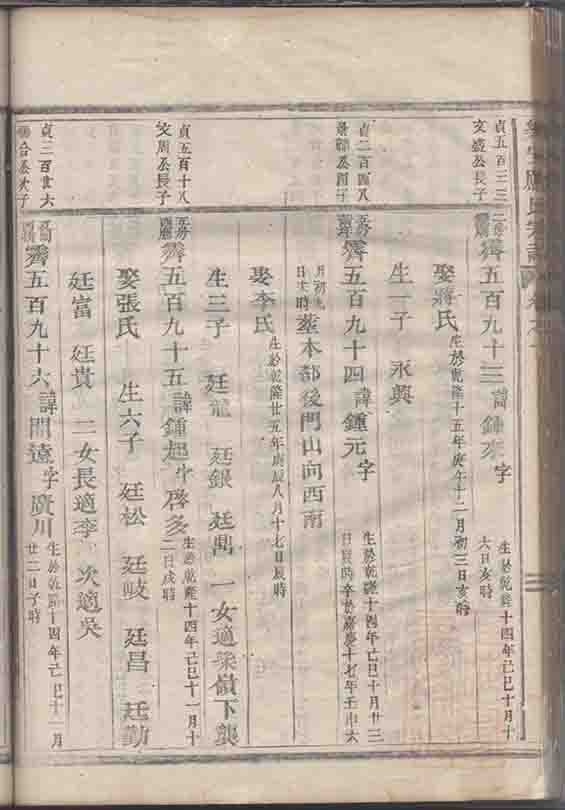 貞五百三三
文盛公長子
霽五百九十三諱鍾來字
生於乾隆十四年己巳十月十
六日亥時
娶蔣氏
生於乾隆十五年庚午十二月初三日亥時
生一子 永興
貞二百四八
霽五百九十四諱鍾元字
生於乾隆十四年己巳十月廿三
日辰時卒於嘉慶十七年壬申六
月初九
日亥時
葬本都後門山向西南
娶李氏
生於乾隆廿五年庚辰八月十七日辰時
生三子 廷龍 廷銀 廷鼎 一女適梁嶺下龔
貞五百十八
文周公長子
霽五百九十五諱鍾起字啓多
生於乾隆十四年己巳十一月十
二日戌時
娶張氏 生六子 廷松 廷岐 廷昌 廷勤
廷富 廷貴 二女長適李 次適吳
貞三百廿六
台公次子
霽五百九十六諱開遠字廣川
生於乾隆十四年己巳十一月
廿二日子時